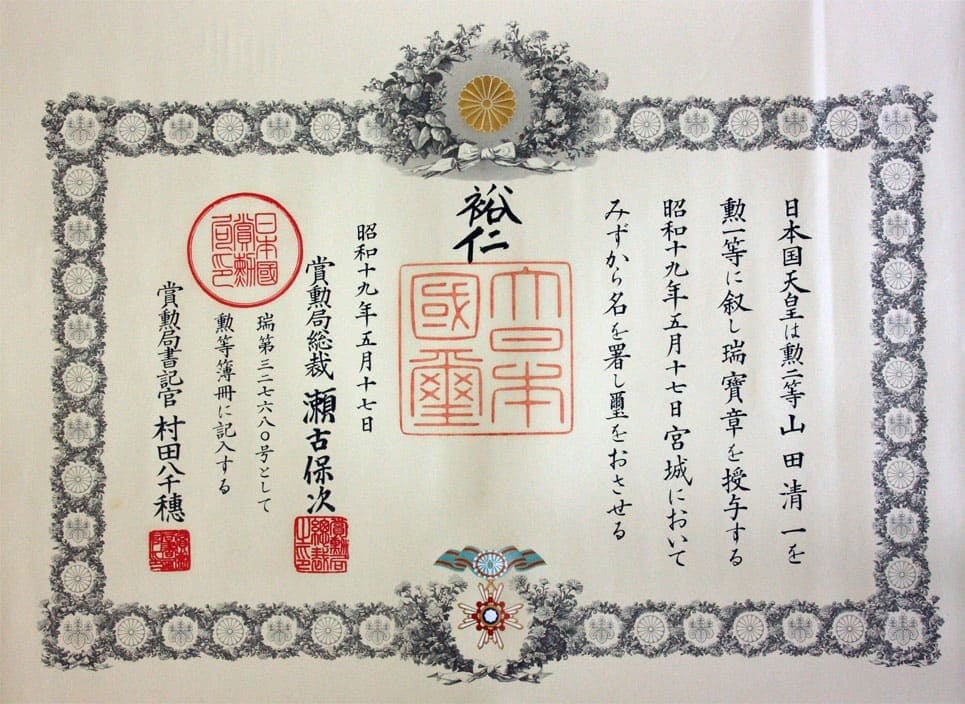 日本国天皇は勲二等山田清一を
勲一等に叙し瑞寶章を授与する
昭和十九年五月十七日宮城において
みずから名を署し璽をおさせる
裕仁
大日本
國璽
昭和十九年五月十七日
賞勲局総裁 瀬古保次
賞勲局
総裁
之印
瑞第三二七六八〇号として
勲等簿冊に記入する
日本國
賞勲
局印
賞勲局書記官 村田八千穂